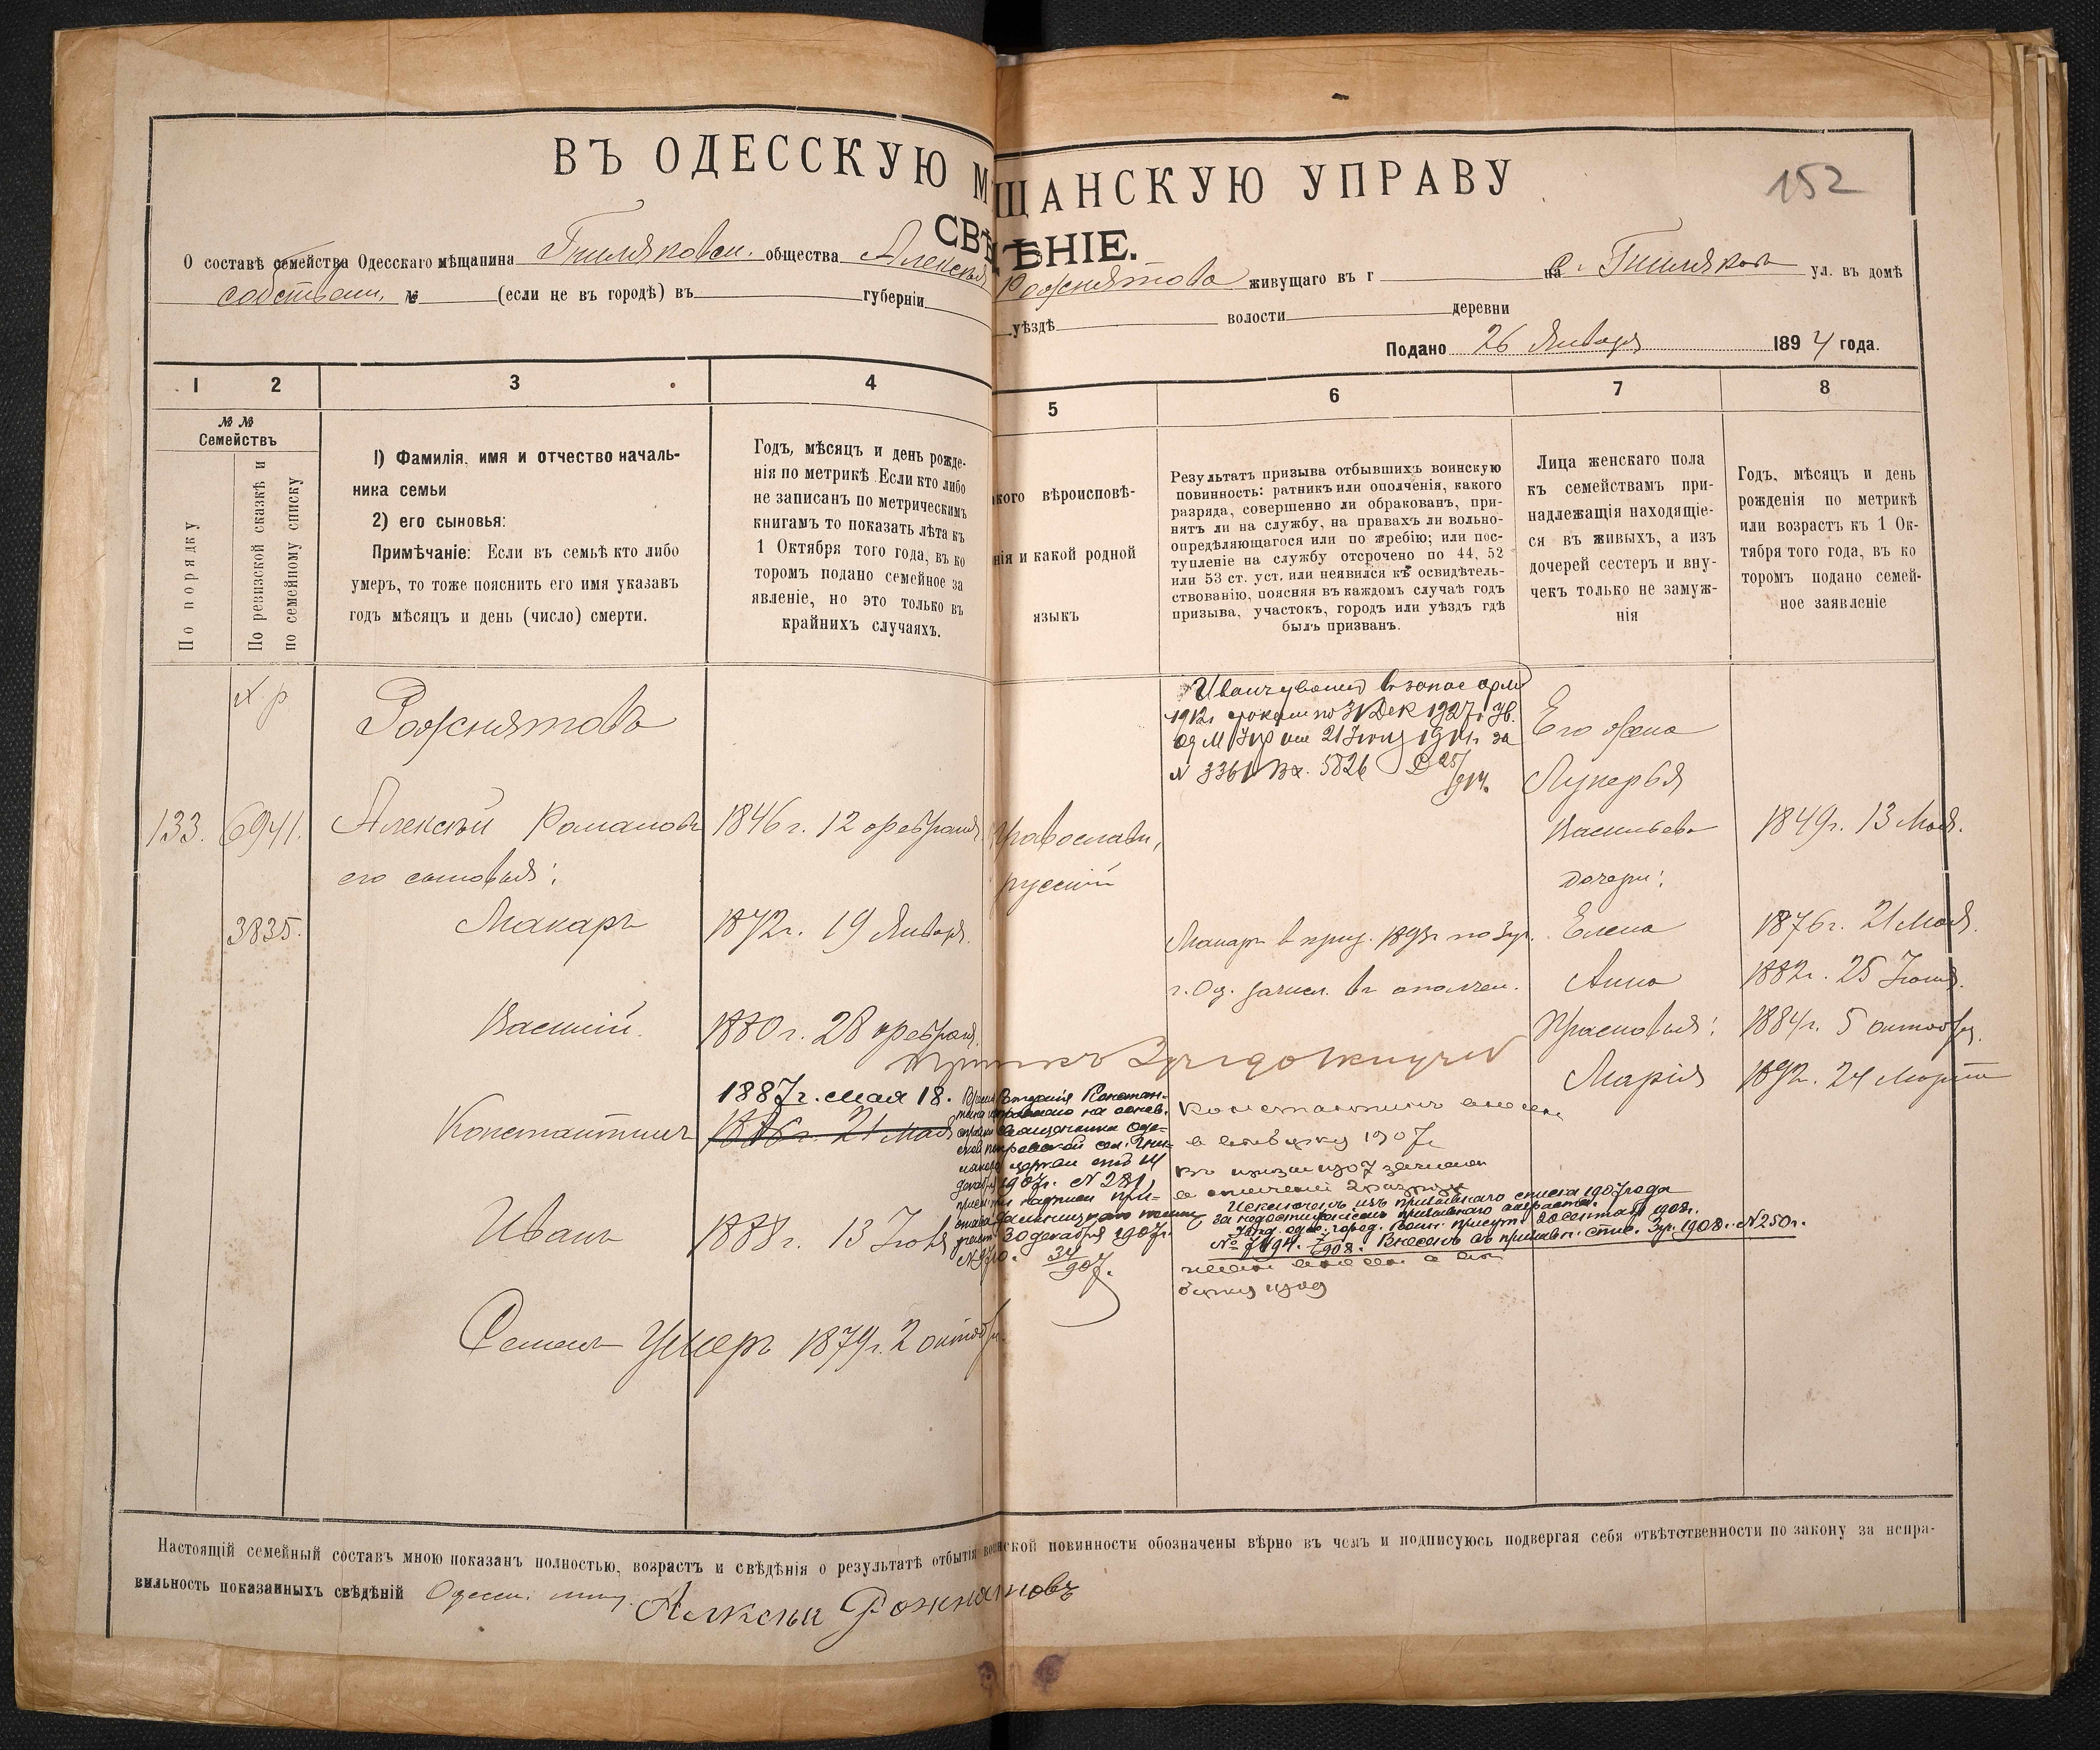 ВЪ ОДЕССКУЮ М ЩАНСКУЮ УПРАВУ
152
СВѢДѢНІЕ.
О составѣ семейства Одесскаго мѣщанина Гниляковск. общества Алексѣя Рожнятова живущаго въ г на с. Гнилякова ул. въ домѣ
собствен. № (если не въ городѣ) въ губерніи уѣздѣ волости деревни
Подано 26 Января 1894 года.
1 2 3 4 5 6 7 8
№ №
Семействъ
По порядку
По ревизской сказкѣ и
по семейному списку
1) Фамилія, имя и отчество началь-
ника семьи
2) его сыновья:
Примѣчаніе: Если въ семьѣ кто либо
умеръ, то тоже пояснить его имя указавъ
годъ мѣсяцъ и день (число) смерти.
Годъ, мѣсяцъ и день рожде-
нія по метрикѣ Если кто либо
не записанъ по метрическимъ
книгамъ то показать лѣта къ
1 Октября того года, въ ко
торомъ подано семейное за
явленіе, но это только въ
крайнихъ случаяхъ.
кого вѣроисповѣ-
нія и какой родной
языкъ
Результатъ призыва отбывшихъ воинскую
повинность: ратникъ или ополченія, какого
разряда, совершенно ли обракованъ, при-
нятъ ли на службу, на правахъ ли вольно-
опредѣляющагося или по жребію; или пос-
тупленіе на службу отсрочено по 44, 52
или 53 ст. уст. или неявился къ освидѣтель-
ствованію, поясняя въ каждомъ случаѣ годъ
призыва, участокъ, городъ или уѣздъ гдѣ
былъ призванъ.
Лица женскаго пола
къ семействамъ при-
надлежащія находящіе-
ся въ живыхъ, а изъ
дочерей сестеръ и вну-
чекъ только не замуж-
нія
Годъ, мѣсяцъ и день
рожденія по метрикѣ
или возрастъ къ 1 Ок-
тября того года, въ ко
торомъ подано семей-
ное заявленіе
Рожнятовъ
въ запас арм
1912г срокам по 31 Дек 1927г Ув.
21 Іюня 1914г. за
N 3361 Вх. 5826
Его жена
Лукерья
133. 6941. Алексѣй Романовъ 1846 г. 12 февраля Православн, Васильева 1849г. 13 Мая.
его сыновья: русскій дочери:
3835. Макаръ 1872г. 19 Января. Макаръ в приз. 1893г по 3уч. Елена 1876 г. 21 Мая.
г. Од. зачисл. въ ополчен. Анна 1882г. 25 Іюня.
Василій. 1880 г. 28 февраля. Прасковья: 1884г. 5 октобря.
1887г. мая 18. Марія 1892. 24 Марта
Константинъ 1886г. 21 мая Константинъ внесен
1907г. N 281,
30 декабря 1907г.
34/907.
Исключенъ изъ призывного списка 1907 года
за недостиженіемъ призывного возраста.
Внесенъ въ призывн. спис. 3уч. 1908г. N250г.
Иванъ 1888г. 13 Іюля
Семенъ Умеръ 1879г. 2 октобр.
Настоящій семейный составъ мною показанъ полностью, возрастъ и свѣдѣнія о результатѣ отбытія воинской повинности обозначены вѣрно въ чемъ и подписуюсь подвергая себя отвѣтственности по закону за непра-
вильность показанныхъ свѣдѣній Одесск. мѣщ. Алксѣи Рожнятовъ